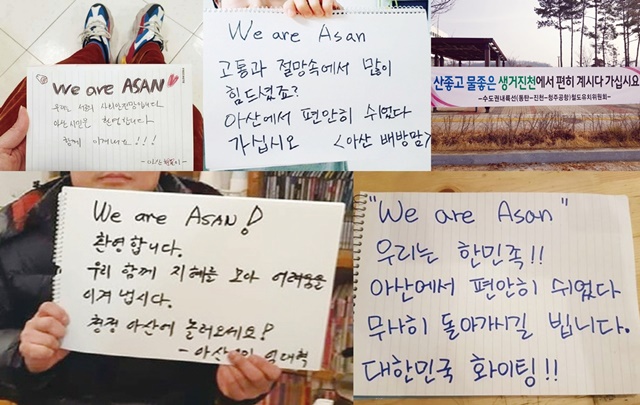 We are ASAN
우리는 서로의 사회안전망입니다.
아산시민은 환영합니다.
함께 이겨내요!!!
We are Asan
고통과 절망속에서 많이
힘드셨죠?
아산에서 편안히 쉬었다
가십시오 <아산 배방맘>
산좋고 물좋은 생거진천에서 편히 계시다 가십시오
-수도권내륙선(동탄~진천~청주공항)철도유치위원회-
We are ASAN!
환영합니다.
우리 함께 지혜를 모아 어려움을
이겨 냅시다.
청정 아산에 놀러오세요!
"We are Asan"
우리는 한민족!!
아산에서 편안히 쉬었다
무사히 돌아가시길 빕니다.
대한민국 화이팅!!